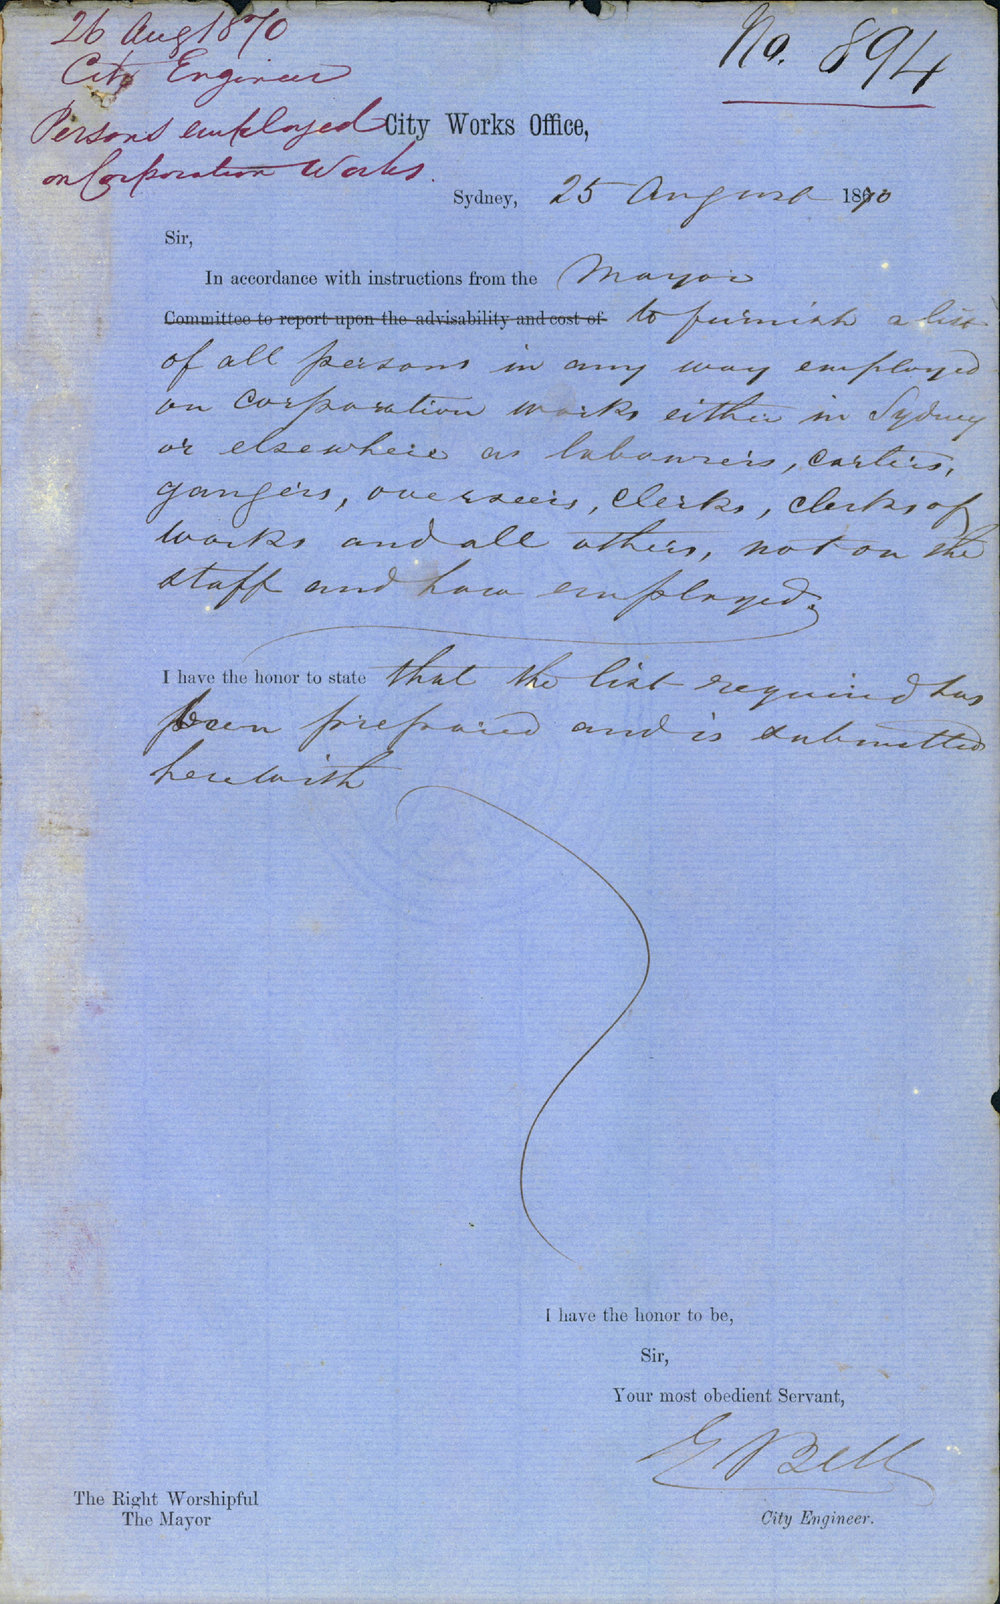 26 Aug 1870
City Engineer
Persons employed
on Corporation Works.
No. 894
City Works Office,
Sydney, 25 August 1870
Sir,
In accordance with instructions from the Mayor
Committee to report upon the advisability and cost of to furnish a list
of all persons in any way employed
on Corporation works either in Sydney
or elsewhere as labourers, carters,
gangers, overseers, clerks, clerks of
works and all others, not on the
staff and how employed.
I have the honor to state that the list required has
been prepared and is submitted
herewith
I have the honor to be,
Sir,
Your most obedient Servant,
E Bell
City Engineer.
The Right Worshipful
The Mayor